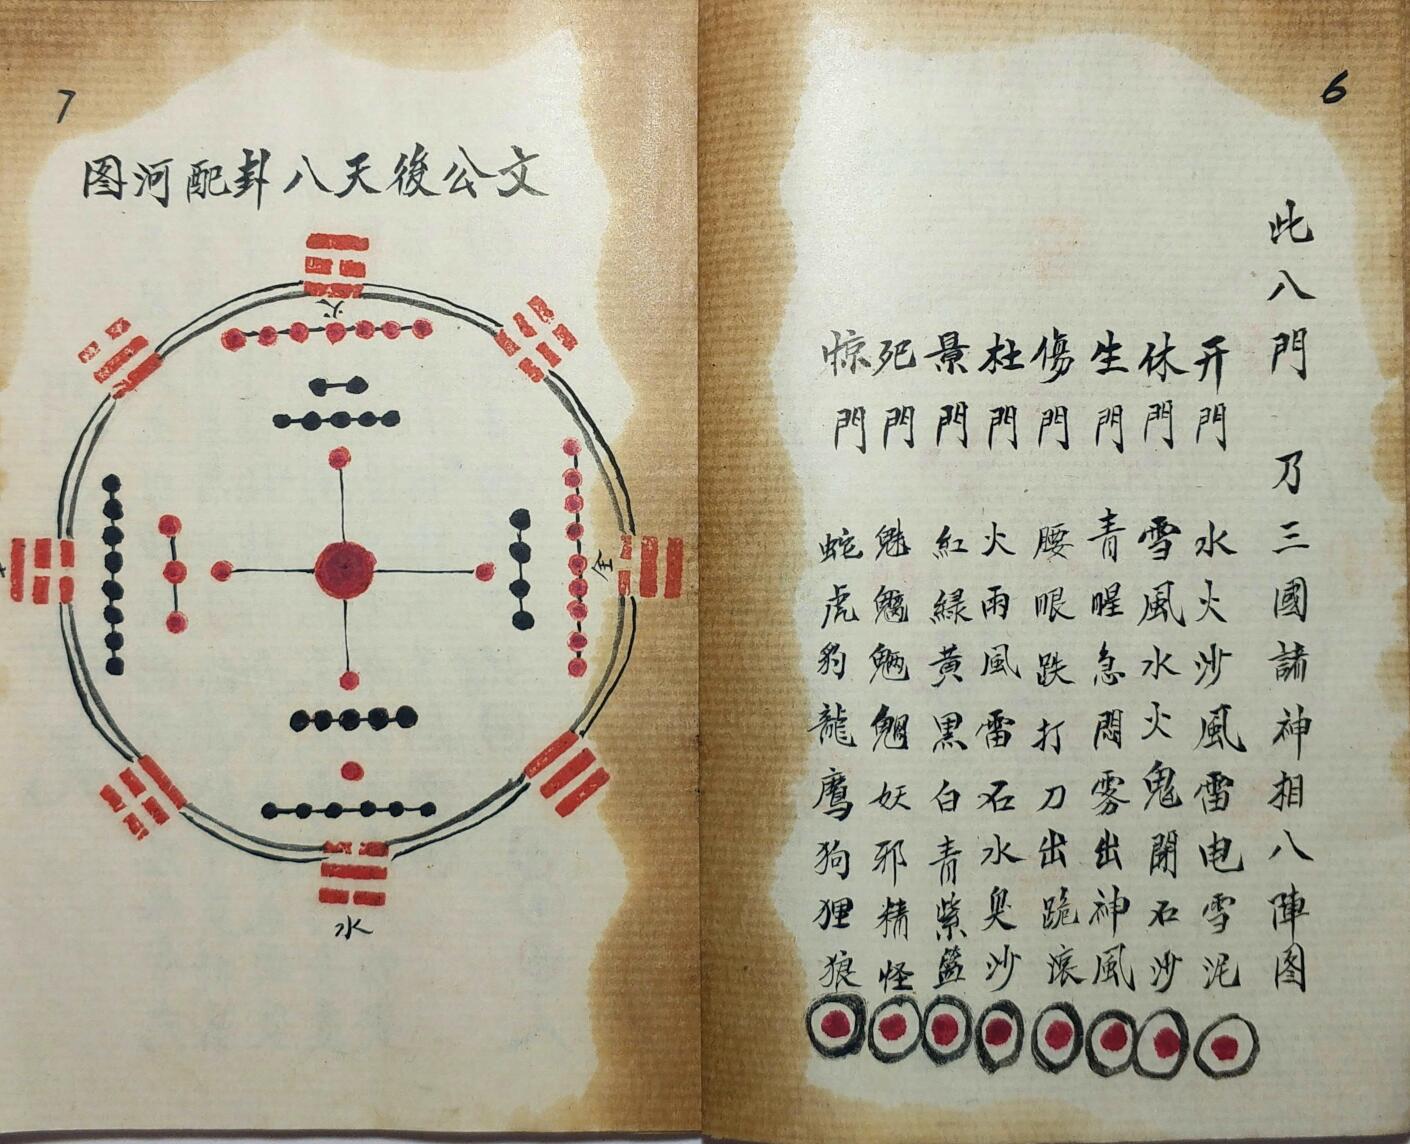 6
此八門乃三國諸神相八陣图
开門 水火沙風雷电雪泥
休門 雪風水火鬼開石沙
生門 青腥急悶雾出神風
傷門 腰眼跌打刀出跪滚
杜門 火雨風雷石水臭沙
景門 紅緑黄黒白青紫籃
死門 魅魑魉魍妖邪精怪
惊門 蛇虎豹龍鹰狗狸狼
7
文公後天八卦配河图
火
金
水